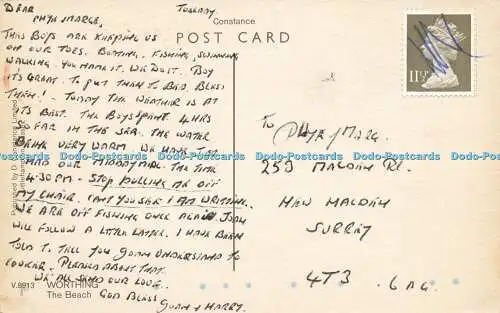 DEAR TUESDAY
PHYL & MARG,
THIS BOYS ARE KEEPING US
ON OUR TOES. BOATING. FISHING, SWIMMING
WALKING. YOU NAME IT. WE DO IT. BOY
ITS GREAT. TO PUT THEM TO BED. BLESS
THEM! - TODAY THE WEATHER IS AT
ITS BEST. THE BOYS SPENT 4 HRS
SO FAR IN THE SEA. THE WATER
BEING VERY WARM WE HAVE JUST
HAD OUR MIDDAY MEAL THE TIME
4.30PM - STOP PULLING ME OFF
MY CHAIR. CANT YOU SEE I AM WRITING.
WE ARE OFF FISHING ONCE AGAIN JOAN
WILL FOLLOW A LETTER LATER. I HAVE BEEN
TOLD TO TELL YOU JOAN UNDERSTAND TO
PLEASED ABOUT THAT.
WE ALL SEND OUR LOVE.
GOD BLESS
JOAN & HARRY.
Constance
POST CARD
11½P
TO PHYL & MARG
253 MALDEN RD.
NEW MALDEN
SURREY
4T3 6AG
V.8913 WORTHING
The Beach
Dodo-Postcards Dodo-Postcards Dodo-Postcards Dodo-Postcards Dodo-Postcards Dodo-Postcards